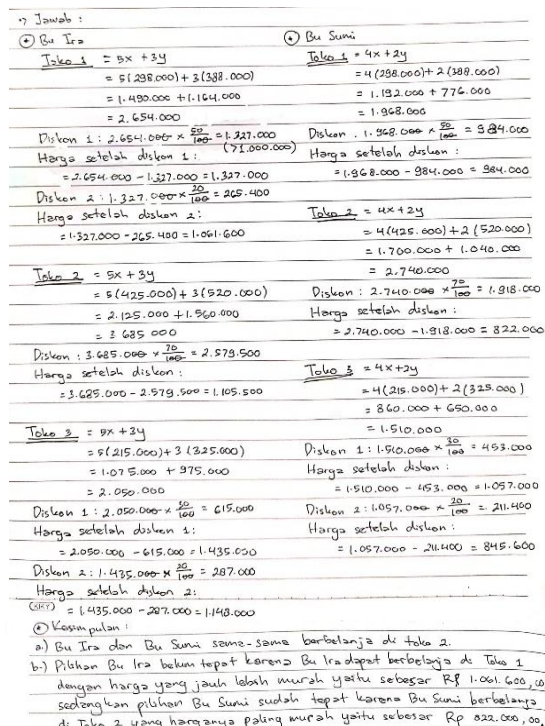 Jawab :
Bu Ira
Toko 1 = 5x + 3y
= 5(298.000) + 3(388.000)
= 1.490.000 + 1.164.000
= 2.654.000
Diskon 1 : 2.654.000 x 50/100 = 1.327.000
(71.000.000)
Harga setelah diskon 1 :
= 2.654.000 - 1.327.000 = 1.327.000
Diskon 2 : 1.327.000 x 20/100 = 265.400
Harga setelah diskon 2 :
= 1.327.000 - 265.400 = 1.061.600
Toko 2 = 5x + 3y
= 5(425.000) + 3(520.000)
= 2.125.000 + 1.560.000
= 3 685 000
Diskon : 3.685.000 x 70/100 = 2.579.500
Harga setelah diskon :
= 3.685.000 - 2.579.500 = 1.105.500
Toko 3 = 5x + 3y
= 5(215.000) + 3(325.000)
= 1.075.000 + 975.000
= 2.050.000
Diskon 1 : 2.050.000 x 30/100 = 615.000
Harga setelah diskon 1 :
= 2.050.000 - 615.000 = 1.435.000
Diskon 2 : 1.435.000 x 20/100 = 287.000
Harga setelah diskon 2 :
= 1.435.000 - 287.000 = 1.148.000
Bu Sumi
Toko 1 = 4x + 2y
= 4(298.000) + 2(388.000)
= 1.192.000 + 776.000
= 1.968.000
Diskon . 1.968.000 x 50/100 = 984.000
Harga setelah diskon :
= 1.968.000 - 984.000 = 984.000
Toko 2 = 4x + 2y
= 4(425.000) + 2(520.000)
= 1.700.000 + 1.040.000
= 2.740.000
Diskon : 2.740.000 x 70/100 = 1.918.000
Harga setelah diskon :
= 2.740.000 - 1.918.000 = 822.000
Toko 3 = 4x + 2y
= 4(215.000) + 2(325.000)
= 860.000 + 650.000
= 1.510.000
Diskon 1 : 1.510.000 x 30/100 = 453.000
Harga setelah diskon :
= 1.510.000 - 453.000 = 1.057.000
Diskon 2 : 1.057.000 x 20/100 = 211.400
Harga setelah diskon :
= 1.057.000 - 211.400 = 845.600
Kesimpulan :
a.) Bu Ira dan Bu Sumi sama-sama berbelanja di toko 2.
b.) Pilihan Bu Ira belum tepat karena Bu Ira dapat berbelanja di Toko 1
dengan harga yang jauh lebih murah yaitu sebesar Rp 1.061.600,00
sedangkan pilihan Bu Sumi sudah tepat karena Bu Sumi berbelanja
di Toko 2 yang harganya paling murah yaitu sebesar Rp 822.000,00